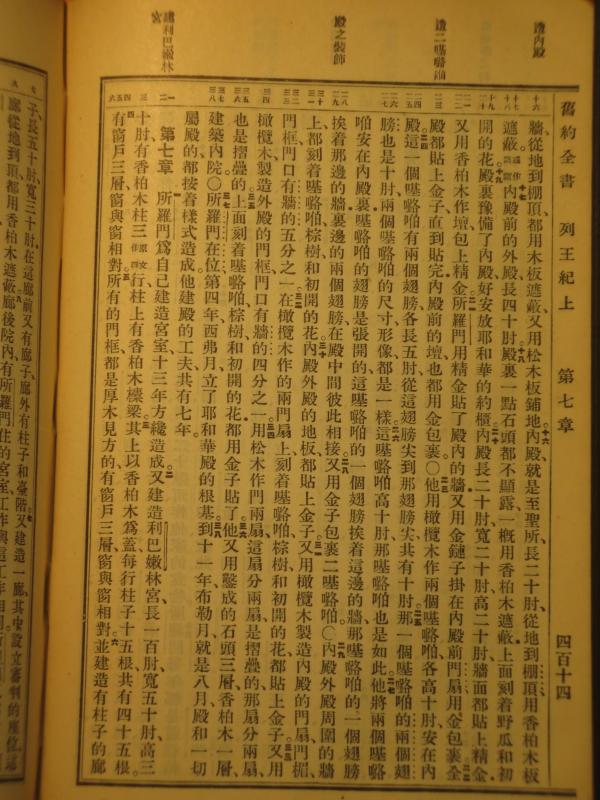 舊約全書　列王紀上　第七章　四百十四
造內殿
造二嘰𡀔𠾴
殿之裝飾
建利巴嫩林宮
牆從地到棚頂都用木板遮蔽又用松木板鋪地內殿就是至聖所長二十肘從地到棚頂用香柏木板
遮蔽內殿前的外殿長四十肘殿裏一點石頭都不顯露一概用香柏木遮蔽上面刻着野瓜和初
開的花殿裏豫備了內殿好安放耶和華的約櫃內殿長二十肘寬二十肘高二十肘牆面都貼上精金
又用香柏木作壇包上精金所羅門用精金貼了殿內的牆又用金鏈子掛在內殿前門扇用金包裹全
殿都貼上金子直到貼完內殿前的壇也都用金包裹〇他用橄欖木作兩個
各高十肘安在內
殿這一個
有兩個翅膀各長五肘從這翅膀尖到那翅膀尖共有十肘那一個
的兩個翅
膀也是十肘兩個
的尺寸形像都是一樣這
高十肘那
也是如此他將兩個
安在內殿裏
的翅膀是張開的這
的一個翅膀挨着這邊的牆那
的一個翅膀
挨着那邊的牆裏邊的兩個翅膀在殿中間彼此相接又用金子包裹二
〇內殿外殿周圍的牆
上都刻着
棕樹和初開的花內殿外殿的地板都貼上金子又用橄欖木製造內殿的門扇門楣
門框門口有牆的五分之一在橄欖木作的兩門扇上刻着
棕樹和初開的花都貼上金子又用
橄欖木製造外殿的門框門口有牆的四分之一用松木作門兩扇這扇分兩扇是摺疊的那扇分兩扇
也是摺疊的上面刻着
棕樹和初開的花都用金子貼了他又用鑿成的石頭三層香柏木一層
建築內院〇所羅門在位第四年西弗月立了耶和華殿的根基到十一年布勒月就是八月殿和一切
屬殿的都按着樣式造成他建殿的工夫共有七年
第七章　所羅門為自己建造宮室十三年方纔造成又建造利巴嫩林宮長一百肘寬五十肘高三
十肘有香柏木柱三行柱上有香柏木檩梁其上以香柏木為蓋每行柱子十五根共有四十五根
有窗戶三層窗與窗相對所有的門框都是厚木見方的有窗戶三層窗與窗相對並建造有柱子的廊
子長五十肘寬三十肘在這廊前又有廊子廊外有柱子和臺階又建造一廊其中設立審判的座位這
廊從地到頂都用香柏木遮蔽廊後院內有所羅門住的宮室工作與這工作相同